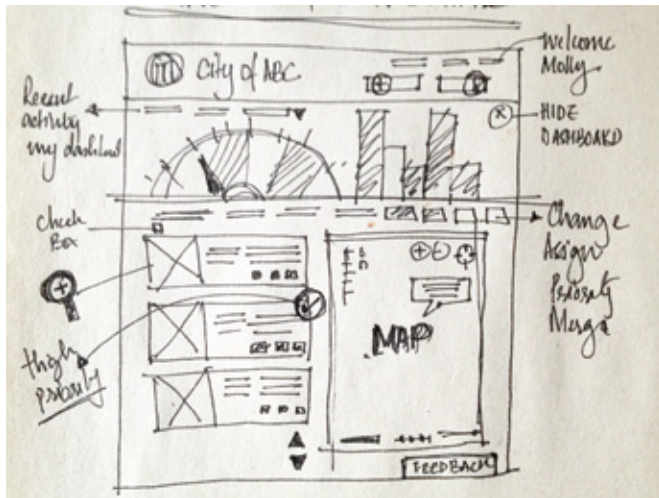 City of ABC
Welcome
Molly
Recent
activity
my dashboard
HIDE
DASHBOARD
Check
Box
Change
Assign
Priority
Merge
MAP
High
priority
FEEDBACK